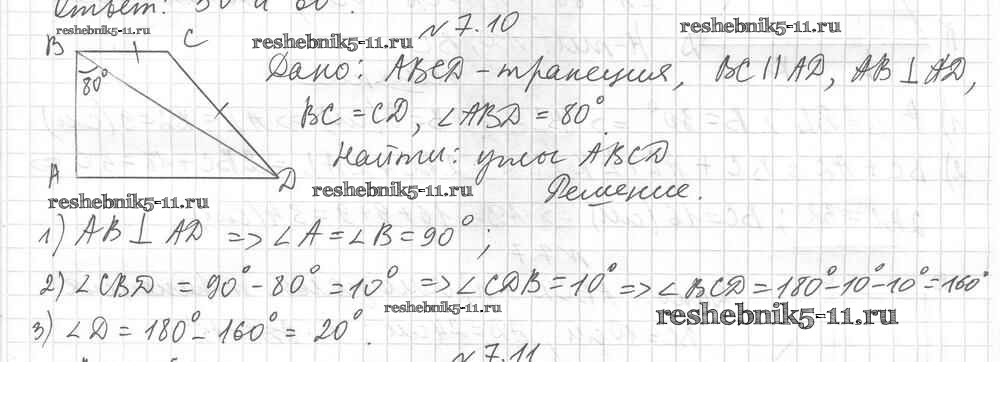 Ответ: 30° и 60°.
reshebnik5-11.ru
reshebnik5-11.ru
reshebnik5-11.ru
№ 7.10
B C
80°
A D
Дано: ABCD – трапеция, BC || AD, AB ⊥ AD,
BC = CD, ∠ABD = 80°.
Найти: углы ABCD
reshebnik5-11.ru
reshebnik5-11.ru
Решение.
1) AB ⊥ AD => ∠A = ∠B = 90°;
2) ∠CBD = 90° - 80° = 10° => ∠CDB = 10° => ∠BCD = 180° - 10° - 10° = 160°
reshebnik5-11.ru
reshebnik5-11.ru
3) ∠D = 180° - 160° = 20°.
№ 7.11